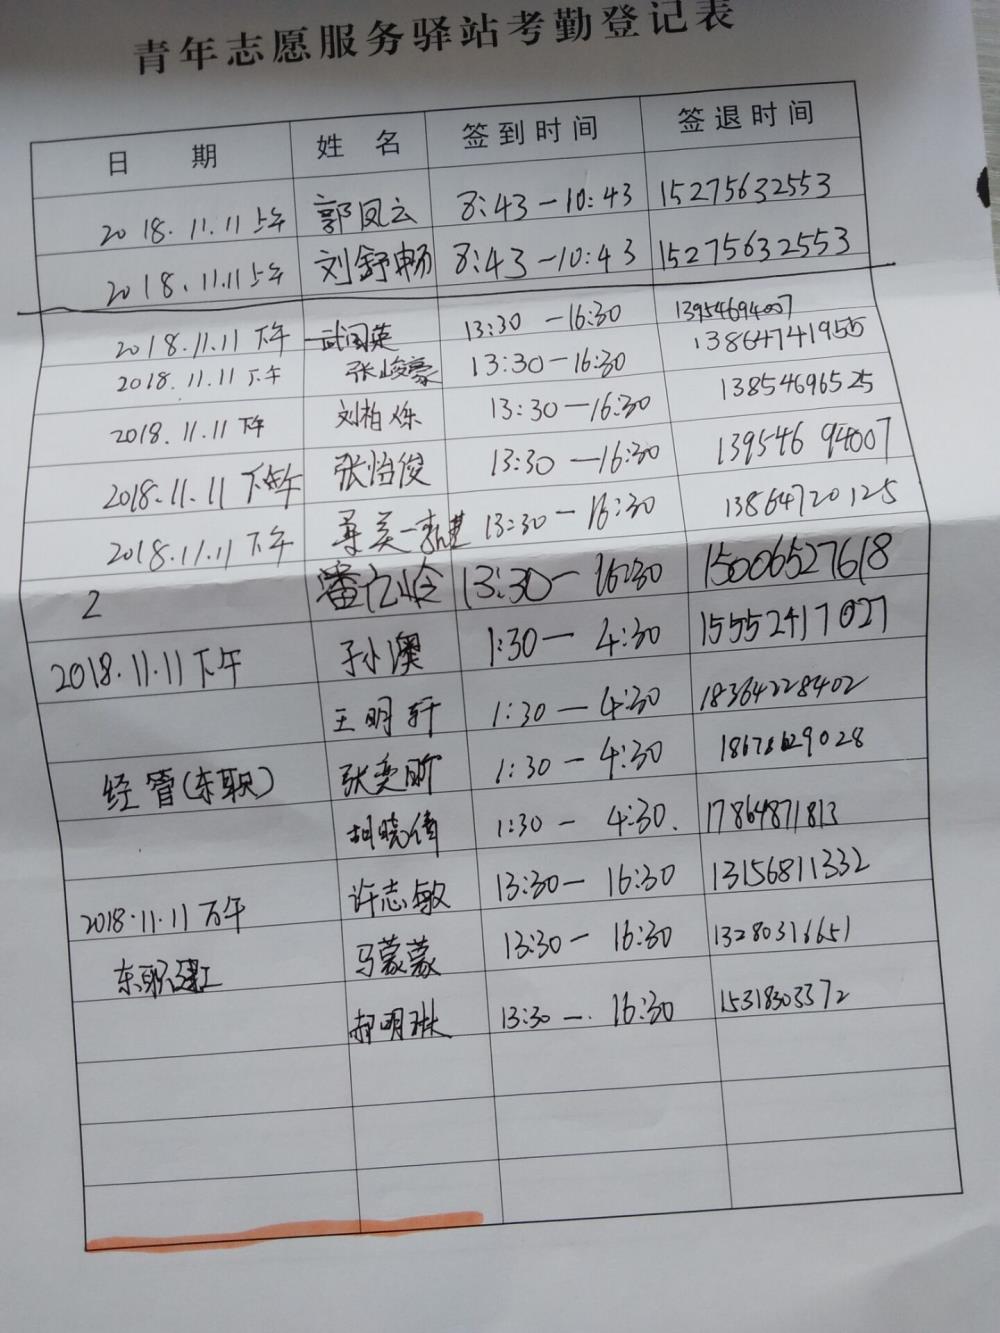 青年志愿服务驿站考勤登记表
日 期 姓 名 签到时间 签退时间
2018.11.11上午 郭凤云 8:43-10:43 15275632553
2018.11.11上午 刘舒畅 8:43-10:43 15275632553
2018.11.11 下午 武国英 13:30-16:30 13954694007
2018.11.11 下午 张峻豪 13:30-16:30
2018.11.11 下午 刘柏烁 13:30-16:30 13854696525
2018.11.11 下午 张怡俊 13:30-16:30 13954694007
2018.11.11 下午 13:30-16:30 13864720125
2 13:30-16:30 15006527618
2018.11.11下午 孙小澳 1:30-4:30 15552417027
王明轩 1:30-4:30 18364228402
经管(东职) 张奕昕 1:30-4:30
胡晓倩 1:30-4:30. 17864871813
2018.11.11下午 许志敏 13:30-16:30 13156811332
马蒙蒙 13:30-16:30 13280316651
郝明琳 13:30-16:30 15318303372